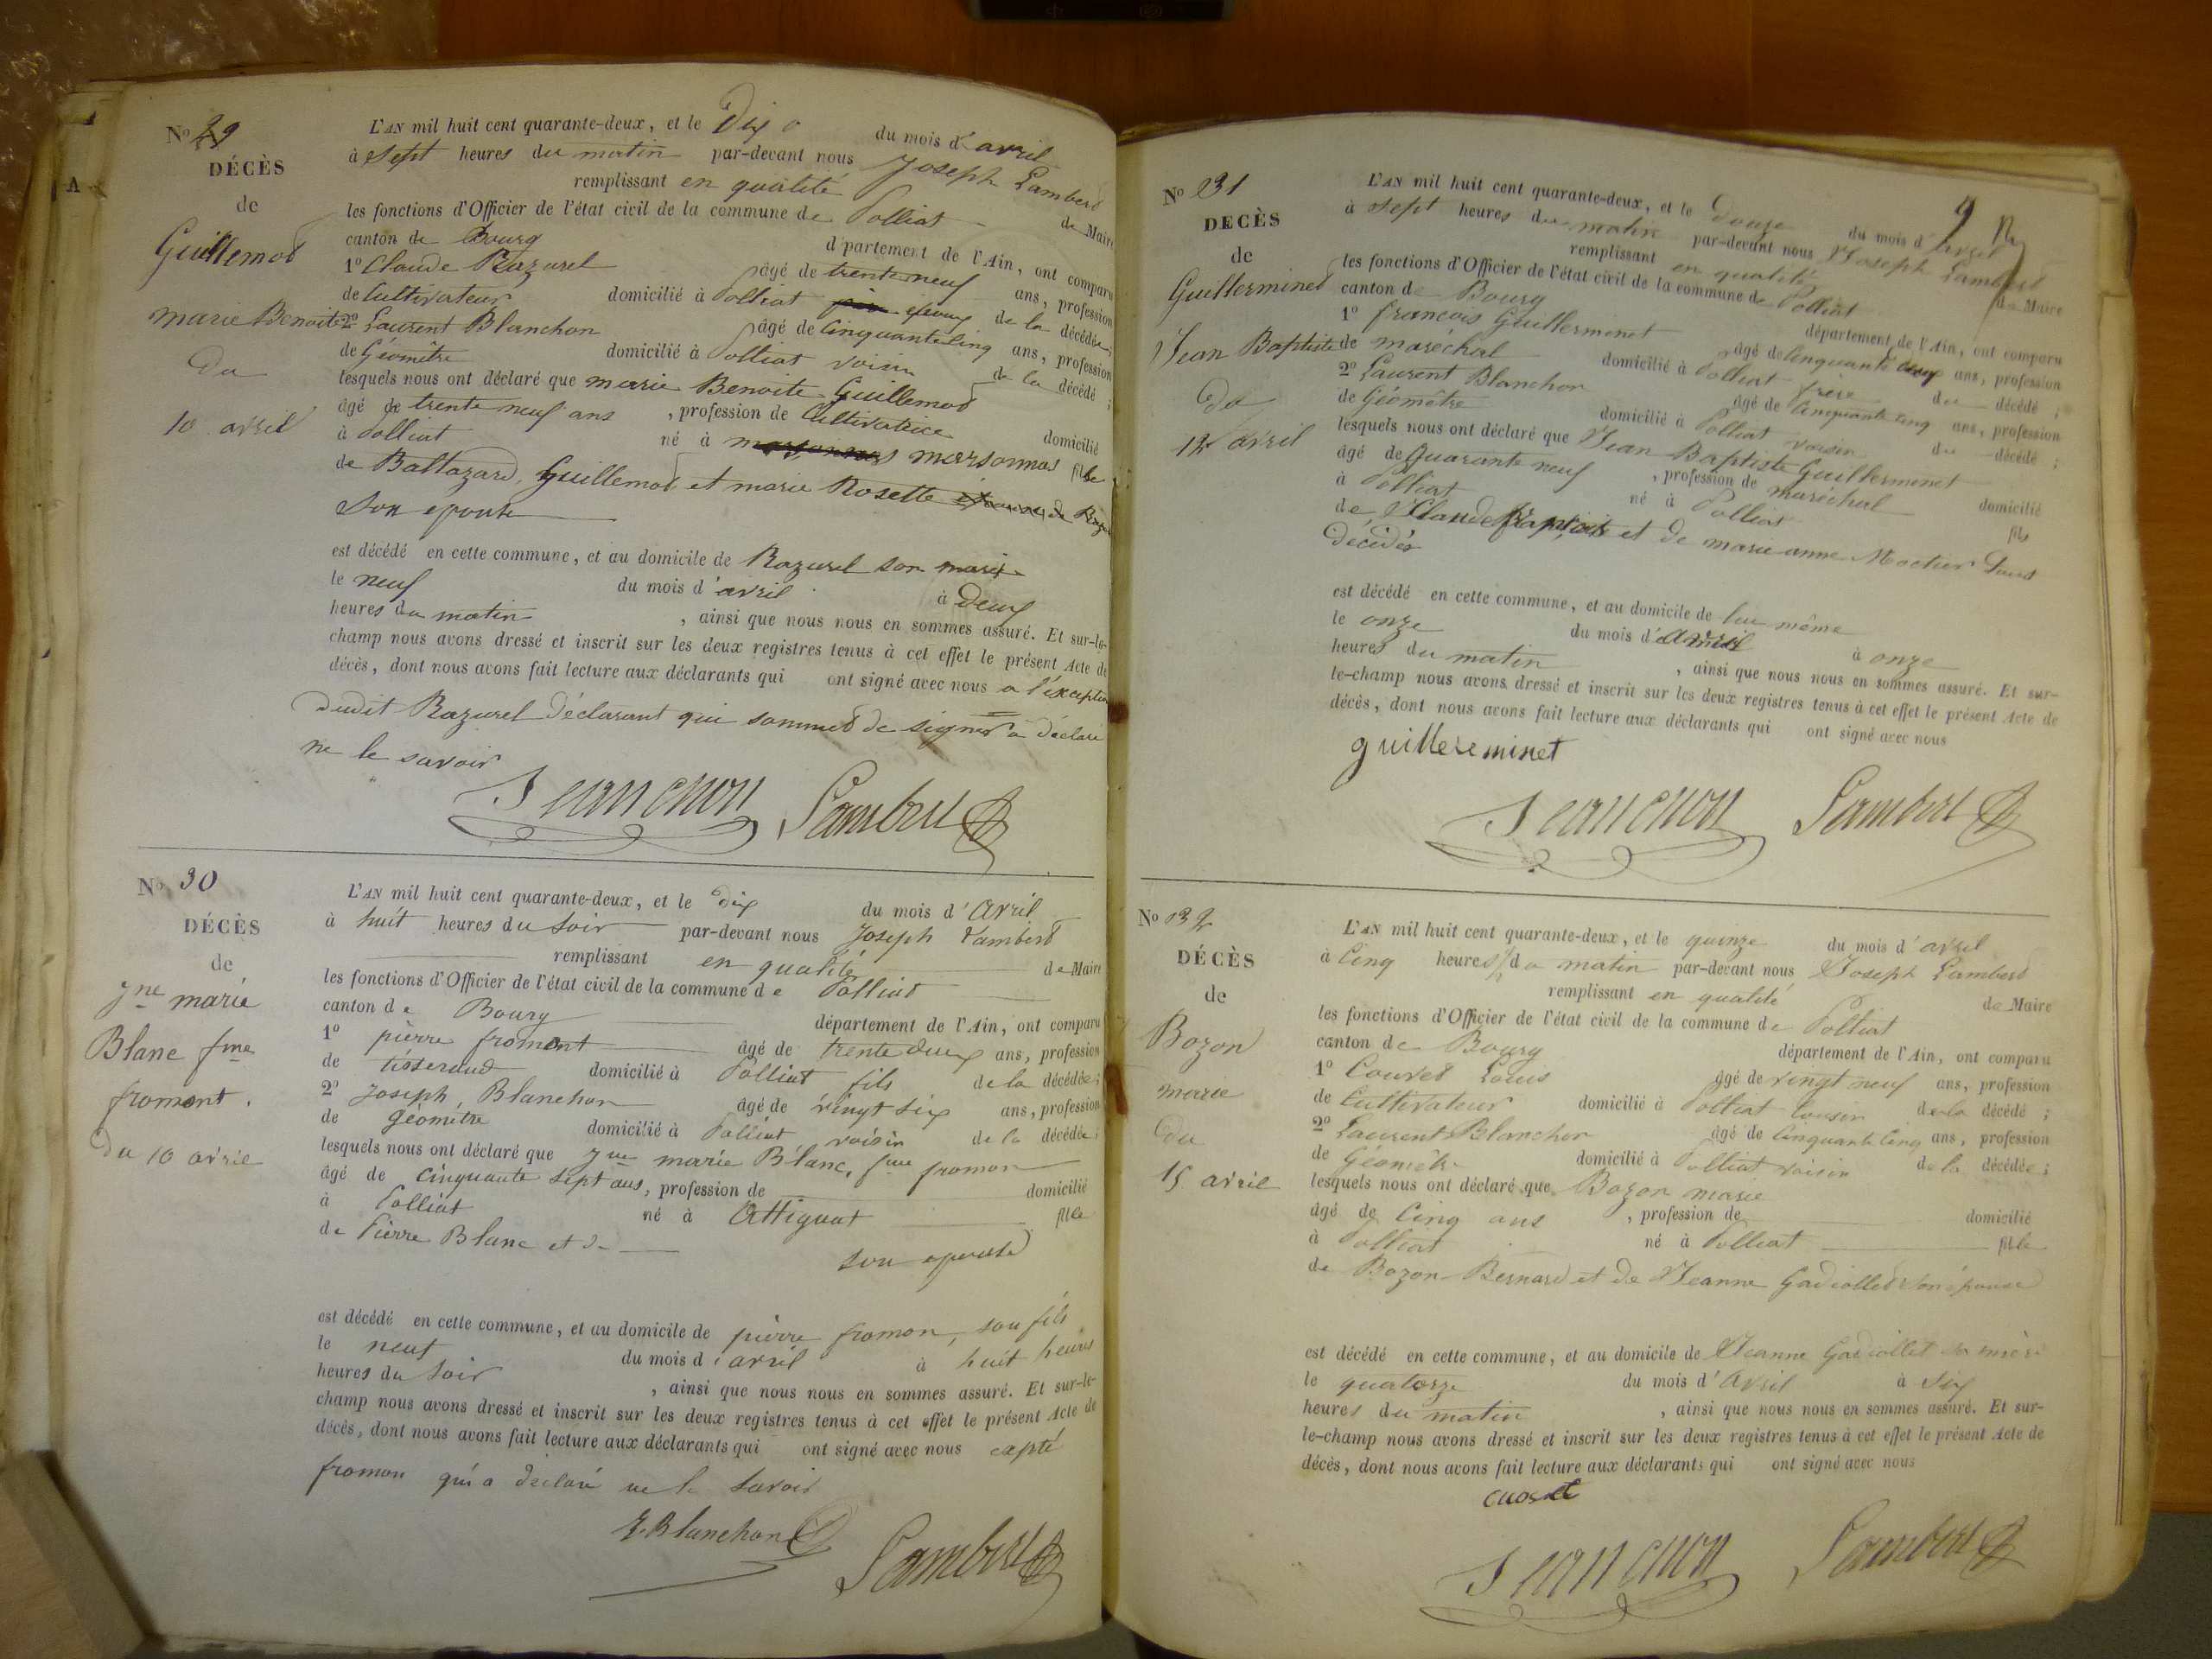 No 29
DÉCÈS
de
Guillemot
marie Benoite
Du
10 avril
L'AN mil huit cent quarante-deux, et le Dix du mois d'avril
à sept heures du matin par-devant nous Joseph Lambert
remplissant en qualité de Maire
les fonctions d'Officier de l'état civil de la commune de Polliat
canton de Bourg département de l'Ain, ont comparu
1º Claude Razurel âgé de trente neuf ans, profession
de Cultivateur domicilié à Polliat époux de la décédée;
2º Laurent Blanchon âgé de Cinquante cinq ans, profession
de Géomêtre domicilié à Polliat voisin de la décédé;
lesquels nous ont déclaré que marie Benoite Guillemot
âgé de trente neuf ans, profession de Cultivatrice domicilié
à Polliat né à marsonnas fille
de Baltazard Guillemot et marie Rosette
son épouse
est décédé en cette commune, et au domicile de Razurel son mari
le neuf du mois d'avril à Deux
heures du matin, ainsi que nous nous en sommes assuré. Et sur-le-
champ nous avons dressé et inscrit sur les deux registres tenus à cet effet le présent Acte de
décès, dont nous avons fait lecture aux déclarants qui ont signé avec nous a l'exception
dudit Razurel Déclarant qui sommet de signer a déclaré
ne le savoir
Lambert
No 30
DÉCÈS
de
Jne marie
Blanc fme
froment.
Du 10 avril
L'AN mil huit cent quarante-deux, et le dix du mois d'Avril
à huit heures du soir par-devant nous Joseph Lambert
remplissant en qualité de Maire
les fonctions d'Officier de l'état civil de la commune de Polliat
canton de Bourg département de l'Ain, ont comparu
1º pierre froment âgé de trente deux ans, profession
de tisserand domicilié à Polliat fils de la décédée;
2º Joseph Blanchon âgé de vingt six ans, profession
de géomètre domicilié à Polliat voisin de la décédée;
lesquels nous ont déclaré que Jne marie Blanc, fme fromon
âgé de cinquante sept ans, profession de domicilié
à Polliat né à Attignat fille
de Pierre Blanc et de
son épouse
est décédé en cette commune, et au domicile de pierre fromon, son fils
le neuf du mois d'avril à huit heures
heures du soir, ainsi que nous nous en sommes assuré. Et sur-le-
champ nous avons dressé et inscrit sur les deux registres tenus à cet effet le présent Acte de
décès, dont nous avons fait lecture aux déclarants qui ont signé avec nous expté
fromon qui a déclaré ne le savoir
J. Blanchon Lambert
9
No 31
DECÈS
de
Guillerminet
Jean Baptiste
Du
12 avril
L'AN mil huit cent quarante-deux, et le Douze du mois d'avril
à sept heures du matin par-devant nous Joseph Lambert
remplissant en qualité de Maire
les fonctions d'Officier de l'état civil de la commune de Polliat
canton de Bourg département de l'Ain, ont comparu
1º francois Guillerminet âgé de Cinquante ans, profession
de maréchal domicilié à Polliat frère du décédé;
2º Laurent Blanchon âgé de Cinquante cinq ans, profession
de Géomètre domicilié à Polliat voisin du décédé;
lesquels nous ont déclaré que Jean Baptiste Guillerminet
âgé de Quarante neuf, profession de maréchal domicilié
à Polliat né à Polliat fils
de Claude et de marie anne
décédés
est décédé en cette commune, et au domicile de lui même
le onze du mois d'avril à onze
heures du matin, ainsi que nous nous en sommes assuré. Et sur-
le-champ nous avons dressé et inscrit sur les deux registres tenus à cet effet le présent Acte de
décès, dont nous avons fait lecture aux déclarants qui ont signé avec nous
guillereminet
Lambert
No 32
DÉCÈS
de
Bozon
marie
Du
15 avril
L'AN mil huit cent quarante-deux, et le quinze du mois d'avril
à Cinq heures du matin par-devant nous Joseph Lambert
remplissant en qualité de Maire
les fonctions d'Officier de l'état civil de la commune de Polliat
canton de Bourg département de l'Ain, ont comparu
1º Louis âgé de vingt neuf ans, profession
de Cultivateur domicilié à Polliat cousin de la décédé;
2º Laurent Blanchon âgé de Cinquante Cinq ans, profession
de Géomètre domicilié à Polliat voisin de la décédée;
lesquels nous ont déclaré que Bozon marie
âgé de Cinq ans, profession de domicilié
à Polliat né à Polliat fille
de Bozon Bernard et de Jeanne Gadiollet son épouse
est décédé en cette commune, et au domicile de Jeanne Gadiollet sa mère
le quatorze du mois d'Avril à Six
heures du matin, ainsi que nous nous en sommes assuré. Et sur-
le-champ nous avons dressé et inscrit sur les deux registres tenus à cet effet le présent Acte de
décès, dont nous avons fait lecture aux déclarants qui ont signé avec nous
Lambert